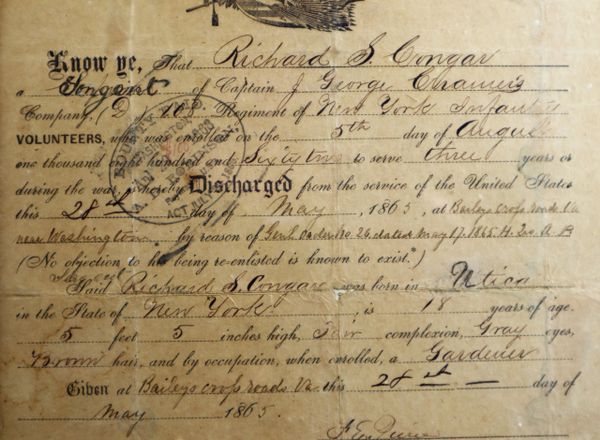 Know ye, That Richard S. Congar
a Sergeant of Captain J George Cramer's
Company, (D) Regiment of New York Infantry
VOLUNTEERS, who was enrolled on the 5th day of August
one thousand eight hundred and Sixty two to serve three years or
during the war, is hereby Discharged from the service of the United States
this 28th day of May, 1865, at Baileys cross roads Va
near Washington by reason of Genl Order No 26 dated May 17 1865 H. Qrs A P
(No objection to his being re-enlisted is known to exist.)
Said Richard S. Congar was born in Utica
in the State of New York, is 18 years of age.
5 feet 5 inches high, Fair complexion, Gray eyes,
Brown hair, and by occupation, when enrolled, a Gardener
Given at Baileys cross roads Va this 28th day of
May 1865.